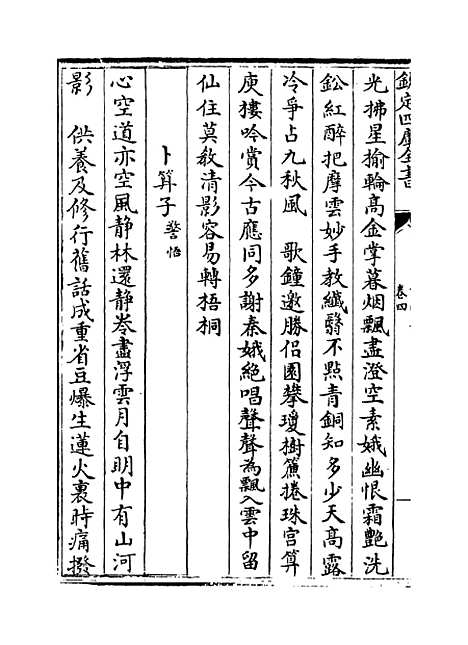 欽定四庫全書
卷四
光拂星揄輪高金掌暮烟飄盡澄空素娥幽恨霜艶洗
鈆紅醉把摩雲妙手教纖翳不點青銅知多少天高露
冷爭占九秋風　歌鐘邀勝侣園攀瓊樹簾捲珠宫算
庾樓吟賞今古應同多謝秦娥絶唱聲聲為飄入雲中留
仙住莫教清影容易轉梧桐
卜算子警悟
心空道亦空風静林還静卷盡浮雲月自明中有山河
影　供養及修行舊話成重省豆爆生蓮火裏時痛撥